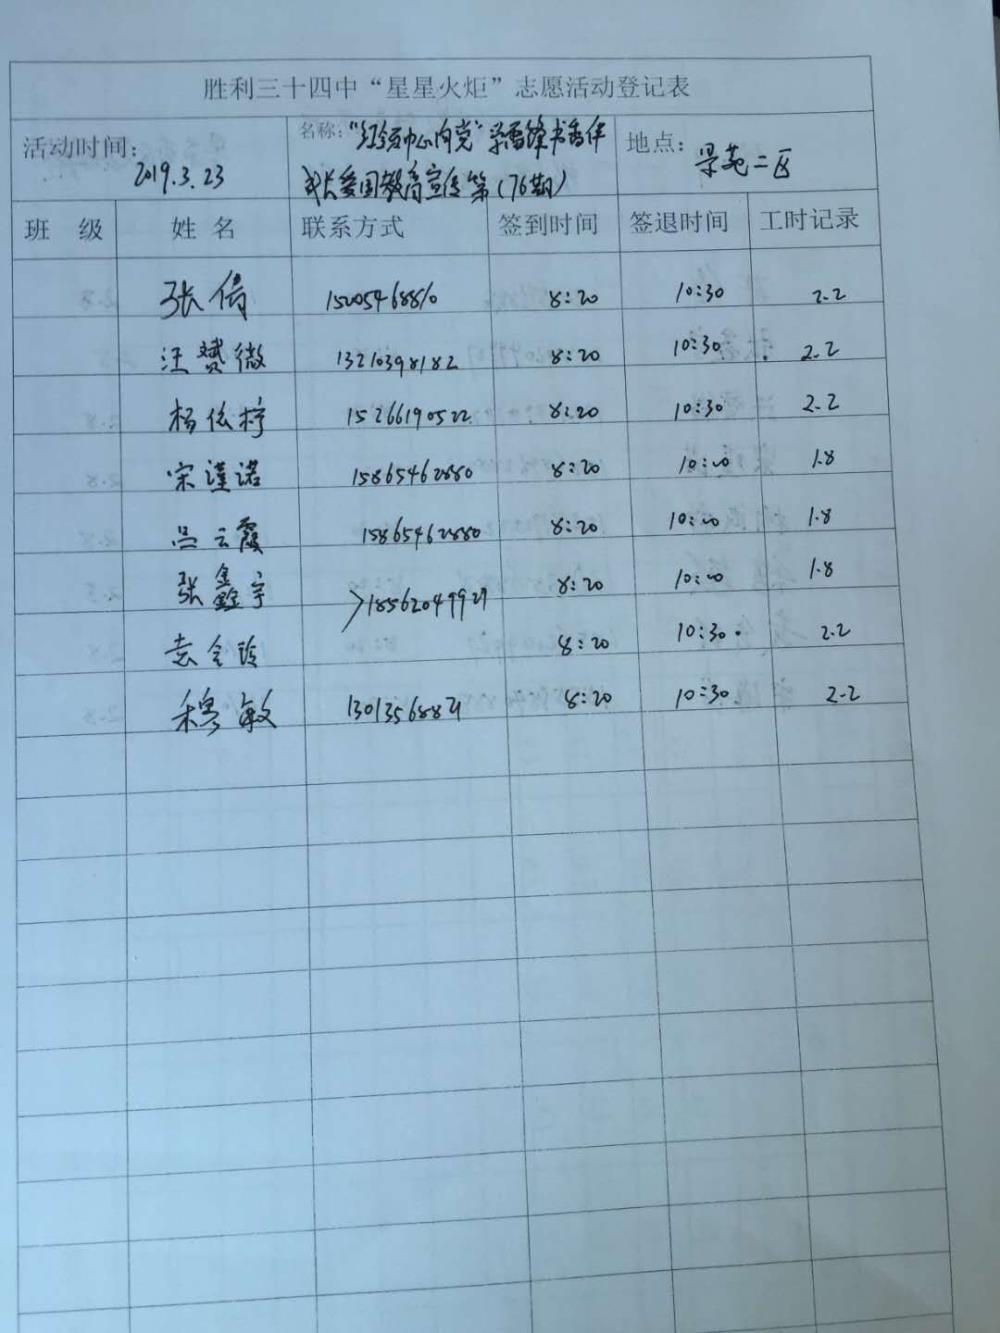 胜利三十四中“星星火炬”志愿活动登记表
活动时间: 2019.3.23 名称:“红领巾心向党”学雷锋书香伴 地点: 景苑二区
成长爱国教育宣传第(76期)
班 级 姓 名 联系方式 签到时间 签退时间 工时记录
张倩 15205468810 8:20 10:30 2.2
汪赟微 13210398182 8:20 10:30 2.2
杨依柠 15266190522 8:20 10:30 2.2
宋谨诺 15865462880 8:20 10:00 1.8
吕云霞 15865462880 8:20 10:00 1.8
张鑫宇 8:20 10:00 1.8
18562049921
袁金玲 8:20 10:30 2.2
穆敏 13013568821 8:20 10:30 2.2